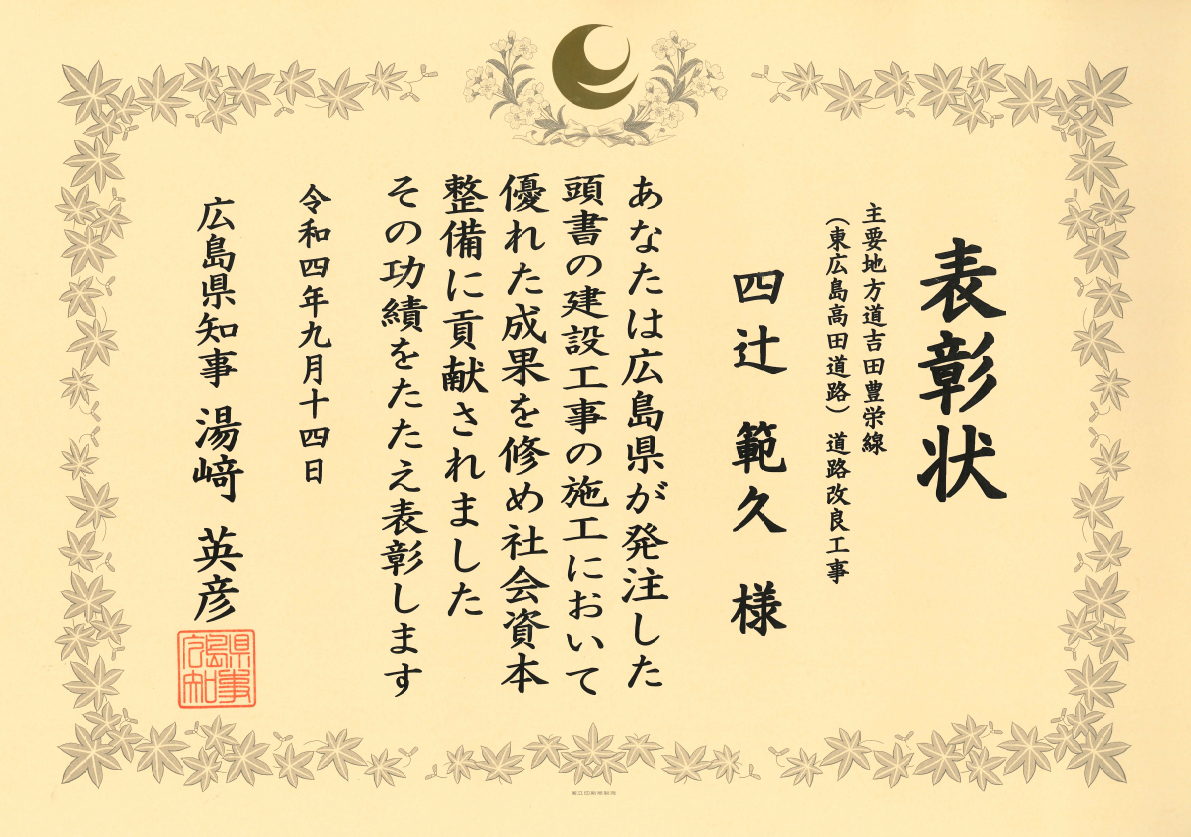 表彰状
主要地方道吉田豊栄線
（東広島高田道路）道路改良工事
四辻 範久 様
あなたは広島県が発注した
頭書の建設工事の施工において
優れた成果を修め社会資本
整備に貢献されました
その功績をたたえ表彰します
令和四年九月十四日
広島県知事 湯﨑 英彦
県事
広島知